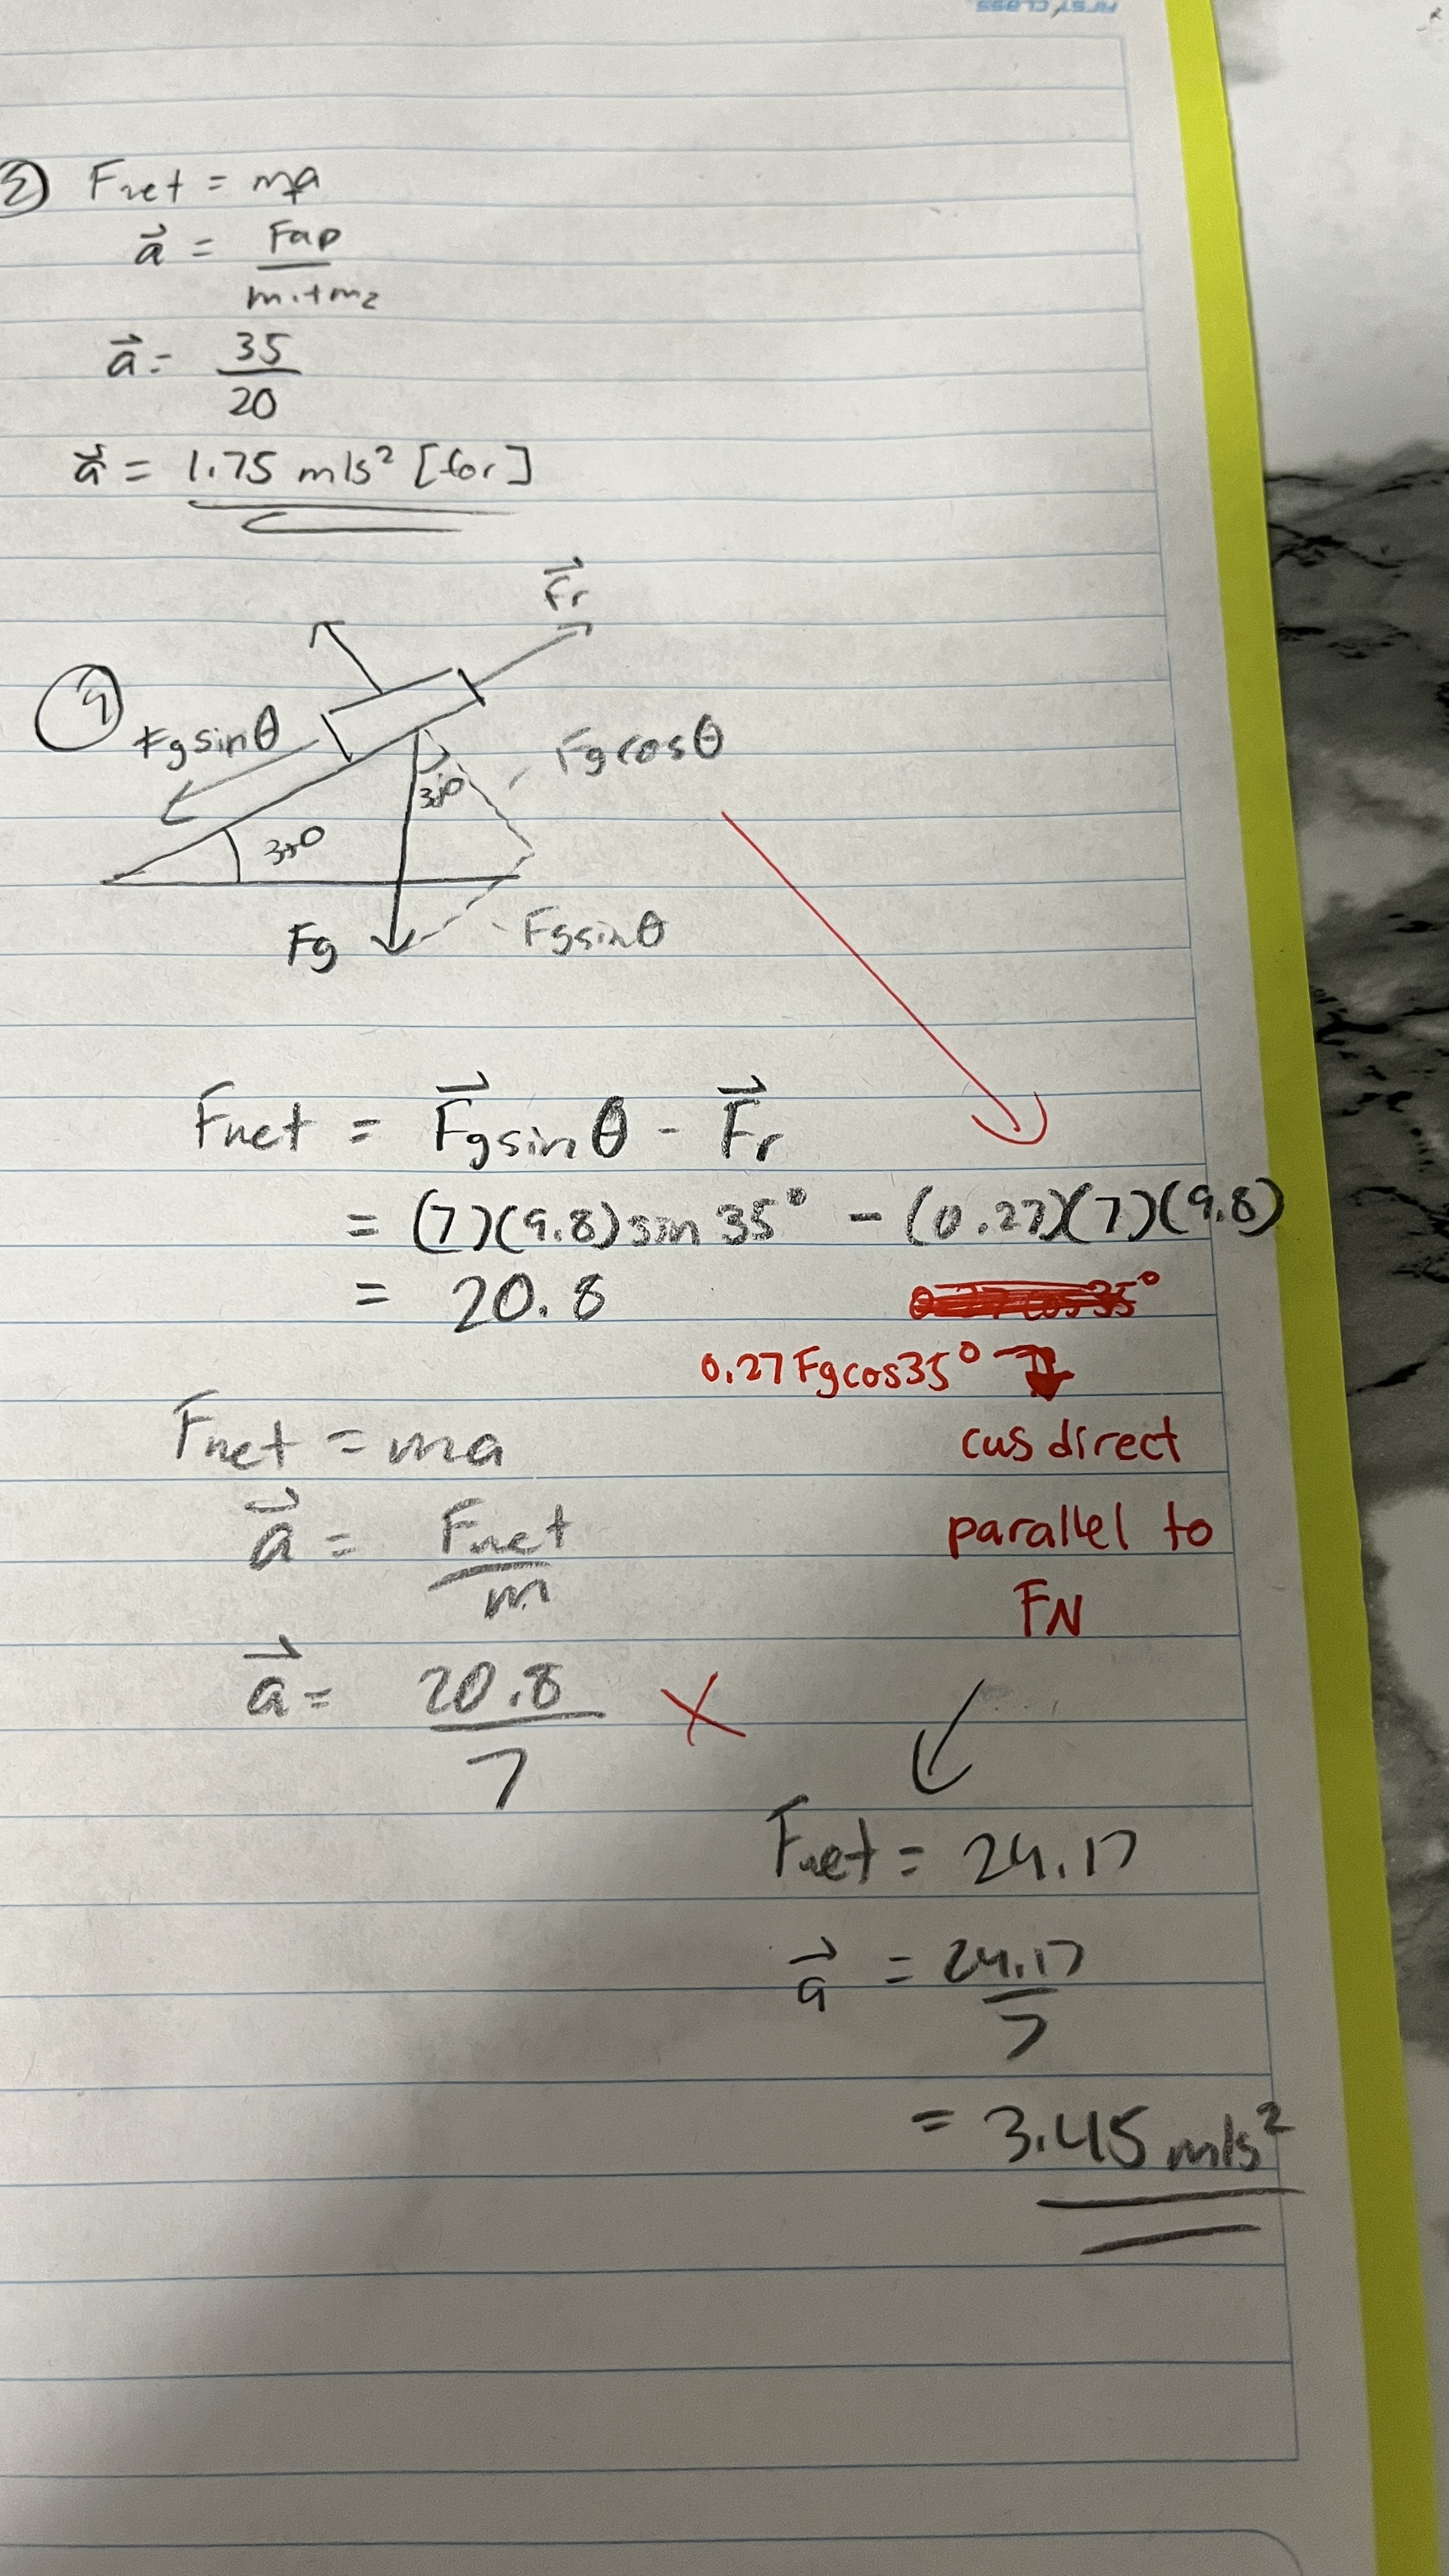 ② Fnet = ma
a⃗ = Fap / m1+m2
a⃗ = 35 / 20
a⃗ = 1.75 m/s² [for]
F⃗r
④
Fgsinθ
Fgcosθ
35°
35°
Fg
Fgsinθ
Fnet = F⃗gsinθ - F⃗r
= (7)(9.8)sin 35° - (0.27)(7)(9.8)
= 20.8
0.27Fgcos35°
Fnet = ma
cus direct
a⃗ = Fnet / m
parallel to
FN
a⃗ = 20.8 / 7 X
Fnet = 24.17
a⃗ = 24.17 / 7
= 3.45 m/s²